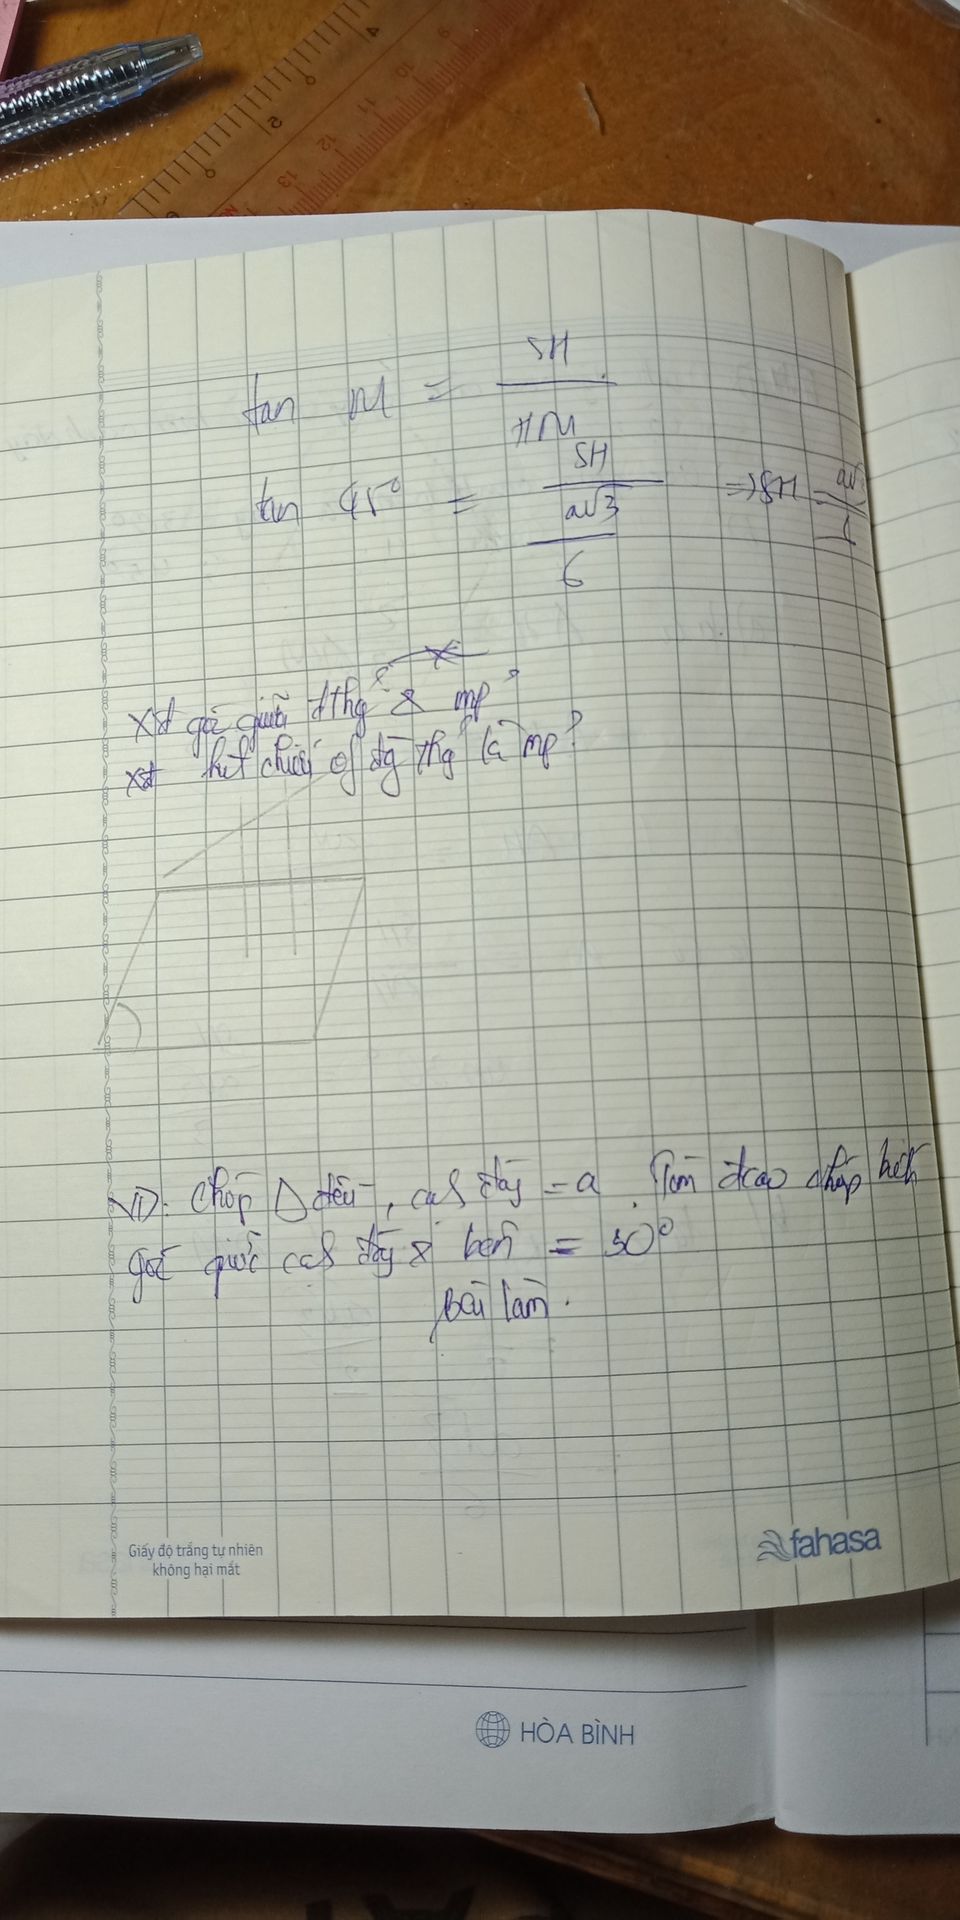 4
5
6
9
10
11
12
13
tan M = SH / HM
tan 45° = SH / a√3 / 6 => SH =
Xđ góc giữa đthg & mp?
Xđ hết chiếu of đg thg là mp?
VD: Chóp Δ đều, cạh đáy = a. Tìm đcao chóp biết
góc giữa cạh đáy & bên = 30°
Bài làm.
Giấy độ trắng tự nhiên
không hại mắt
fahasa
HÒA BÌNH